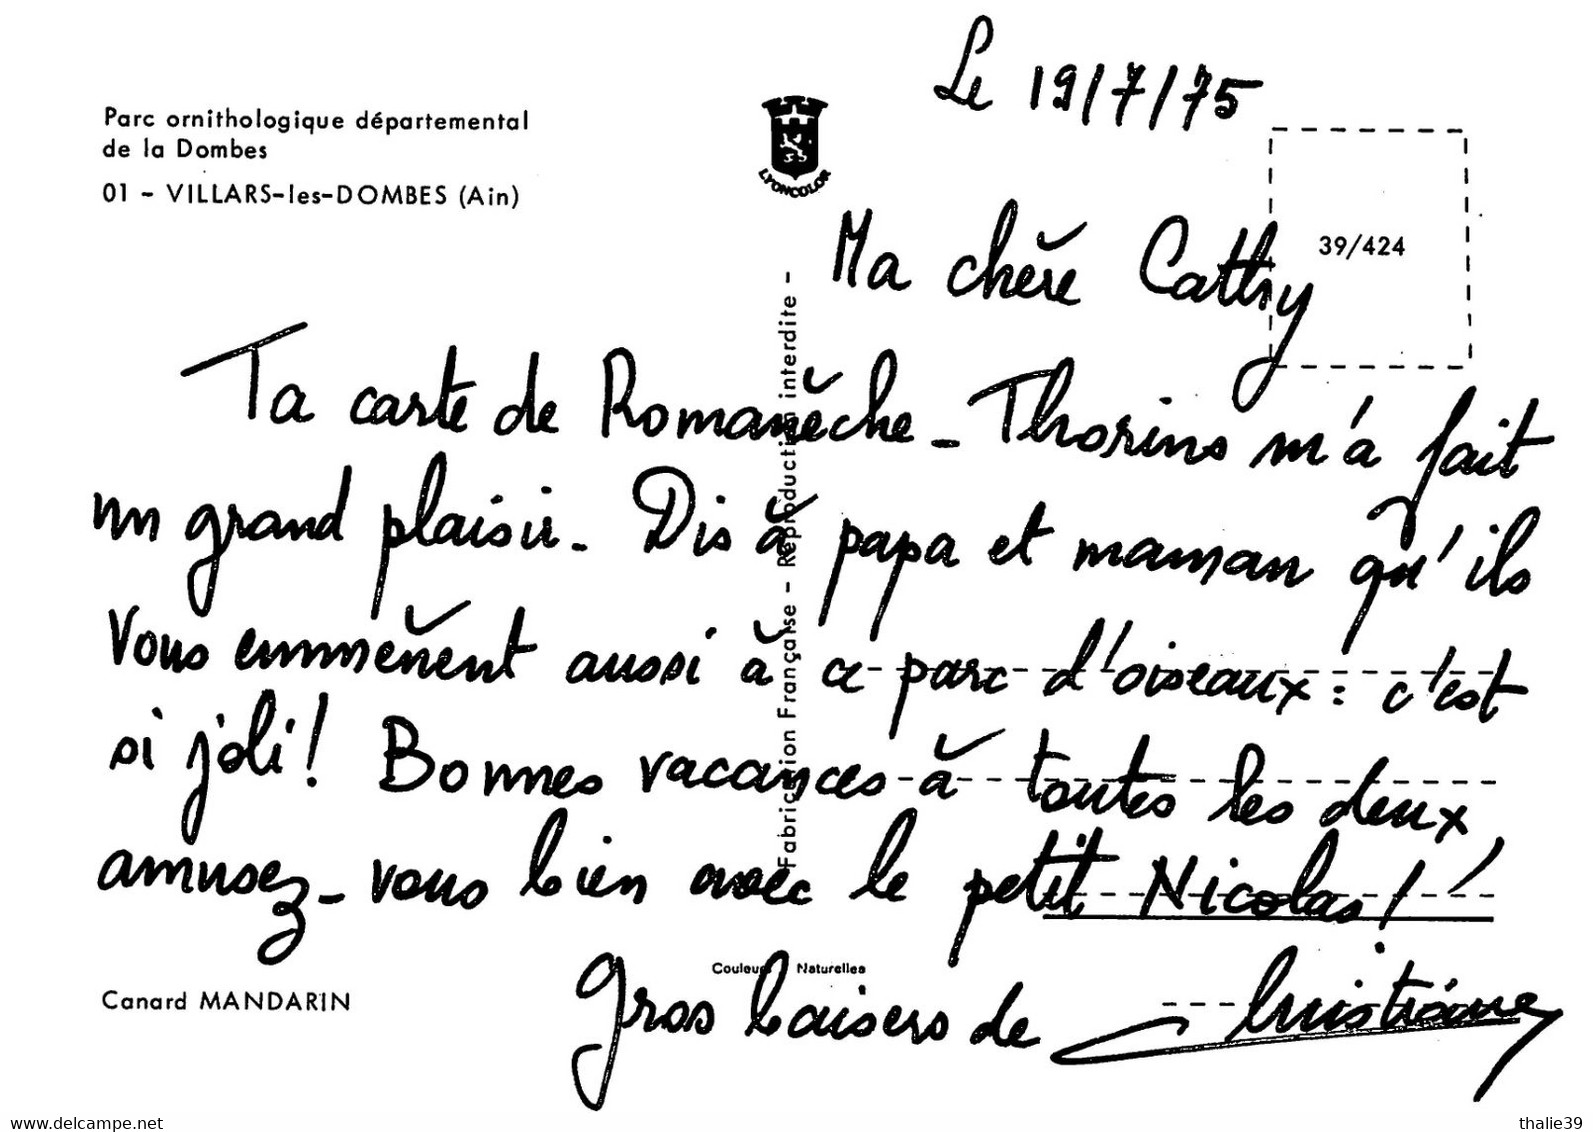 Le 19/7/75
Parc ornithologique départemental
de la Dombes
01 - VILLARS-les-DOMBES (Ain)
LYONCOLOR
39/424
Ma chère Cathy
Ta carte de Romanèche-Thorins m'a fait
un grand plaisir. Dis à papa et maman qu'ils
vous emmènent aussi à ce parc d'oiseaux : c'est
si joli ! Bonnes vacances à toutes les deux,
amusez-vous bien avec le petit Nicolas !
Gros baisers de Christiane
Fabrication Française - Reproduction interdite -
Couleurs Naturelles
Canard MANDARIN
www.delcampe.net
thalie39